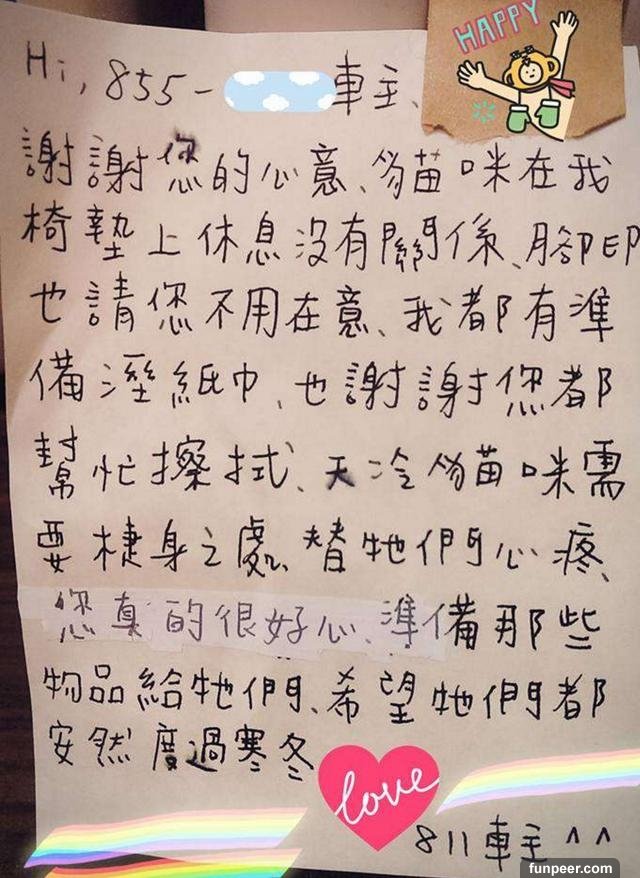 HAPPY
Hi, 855-車主、
謝謝您的心意、貓咪在我
椅墊上休息沒有關係、腳印
也請您不用在意、我都有準
備溼紙巾、也謝謝您都
幫忙擦拭、天冷貓咪需
要棲身之處、替牠們心疼、
您真的很好心、準備那些
物品給牠們、希望牠們都
安然度過寒冬
love
811車主^^
funpeer.com